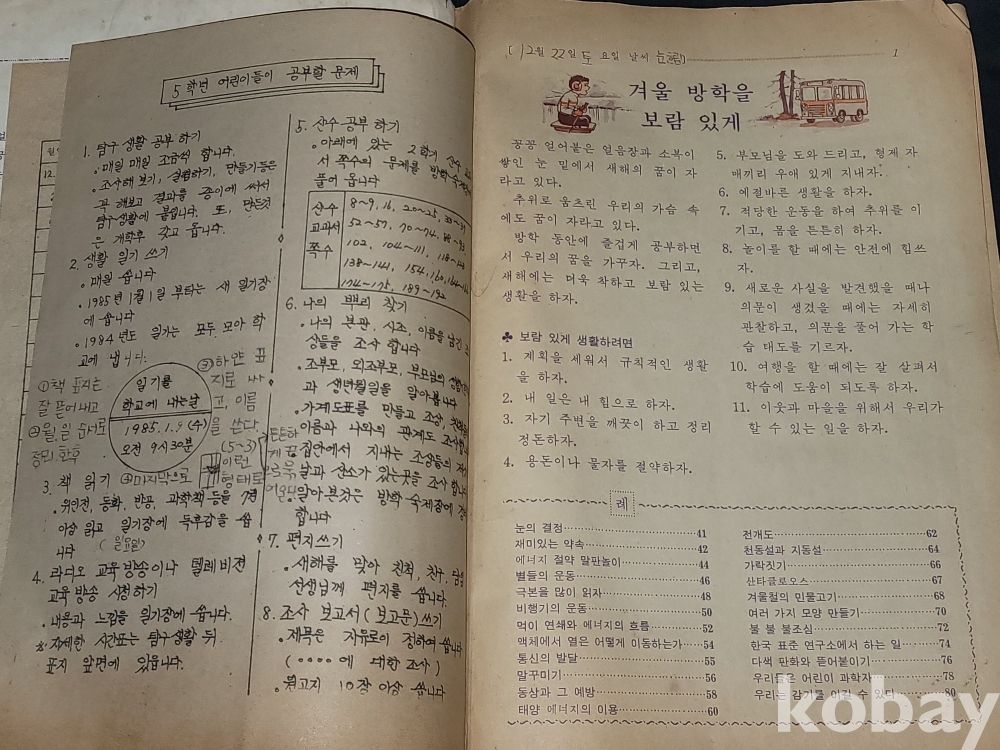 5학년 어린이들이 공부할 문제
1. 탐구생활 공부하기
• 매일 매일 조금씩 합니다.
• 조사해 보기, 실험하기, 만들기 등은
꼭 해보고 결과를 종이에 써서
탐구생활에 붙입니다. 또, 만든것
은 개학후 갖고 옵니다.
2. 생활 일기 쓰기
• 매일 씁니다
• 1985년 1월 1일 부터는 새 일기장
에 씁니다
• 1984년도 일기는 모두 모아 학
교에 냅니다.
일기를
학교에 내는날
1985.1.9 (수)
오전 9시30분
①책 표지는
잘 뜯어내고
②월, 일 순서로
정리한후
③하얀 표
지로 싸
고, 이름
을 쓴다
(5-3)
④마지막으로
이런
형태로
3. 책 읽기
• 위인전, 동화, 반공, 과학책 등을 7권
이상 읽고 일기장에 독후감을 씁
니다
(일요일)
4. 라디오 교육방송이나 텔레비젼
교육방송 시청하기
• 내용과 느낌을 일기장에 씁니다.
※ 자세한 시간표는 탐구생활 뒤
표지 앞면에 있읍니다.
5. 산수 공부하기
• 아래에 있는 2학기 산수
서 쪽수의 문제를 방학숙제장
풀어 옵니다
산수
교과서
쪽수
8~9, 16, 20~25,
52~57, 70~74,
102, 104~111,
138~141, 154, 160,
174~175, 189~192
6. 나의 뿌리 찾기
• 나의 본관, 시조, 이름을 남긴
상들을 조사합니다
• 조부모, 외조부모, 부모님의
과 생년월일을 알아봅니다
• 가계도표를 만들고 조상,
이름과 나와의 관계도
• 집안에서 지내는 조상들의
날과 산소가 있는곳을 조사합
• 알아본것은 방학 숙제장에
합니다
7. 편지쓰기
• 새해를 맞아 친척, 친구,
선생님께 편지를 씁니다.
8. 조사 보고서(보고문)쓰기
• 제목은 자유로이 정하여 씁니다
(••••에 대한 조사)
• 원고지 10장 이상 씁니다
12월 22일 토 요일 날씨
1
겨울 방학을
보람 있게
꽁꽁 얼어붙은 얼음장과 소복이
쌓인 눈 밑에서 새해의 꿈이 자
라고 있다.
추위로 움츠린 우리의 가슴 속
에도 꿈이 자라고 있다.
방학 동안에 즐겁게 공부하면
서 우리의 꿈을 가꾸자. 그리고,
새해에는 더욱 착하고 보람 있는
생활을 하자.
♣ 보람 있게 생활하려면
1. 계획을 세워서 규칙적인 생활
을 하자.
2. 내 일은 내 힘으로 하자.
3. 자기 주변을 깨끗이 하고 정리
정돈하자.
4. 용돈이나 물자를 절약하자.
5. 부모님을 도와 드리고, 형제 자
매끼리 우애 있게 지내자.
6. 예절바른 생활을 하자.
7. 적당한 운동을 하여 추위를 이
기고, 몸을 튼튼히 하자.
8. 놀이를 할 때에는 안전에 힘쓰
자.
9. 새로운 사실을 발견했을 때나
의문이 생겼을 때에는 자세히
관찰하고, 의문을 풀어 가는 학
습 태도를 기르자.
10. 여행을 할 때에는 잘 살펴서
학습에 도움이 되도록 하자.
11. 이웃과 마을을 위해서 우리가
할 수 있는 일을 하자.
례
눈의 결정 41
재미있는 약속 42
에너지 절약 말판놀이 44
별들의 운동 46
극본을 많이 읽자 48
비행기의 운동 50
먹이 연쇄와 에너지의 흐름 52
액체에서 열은 어떻게 이동하는가 54
통신의 발달 55
말꾸미기 56
동상과 그 예방 58
태양 에너지의 이용 60
전개도 62
천동설과 지동설 64
가락짓기 66
산타클로오스 67
겨울철의 민물고기 68
여러 가지 모양 만들기 70
불 불 불조심 72
한국 표준 연구소에서 하는 일 74
다색 판화와 뜯어붙이기 76
우리들은 어린이 과학자 78
우리는 감기를 이길 수 있다 80
kobay